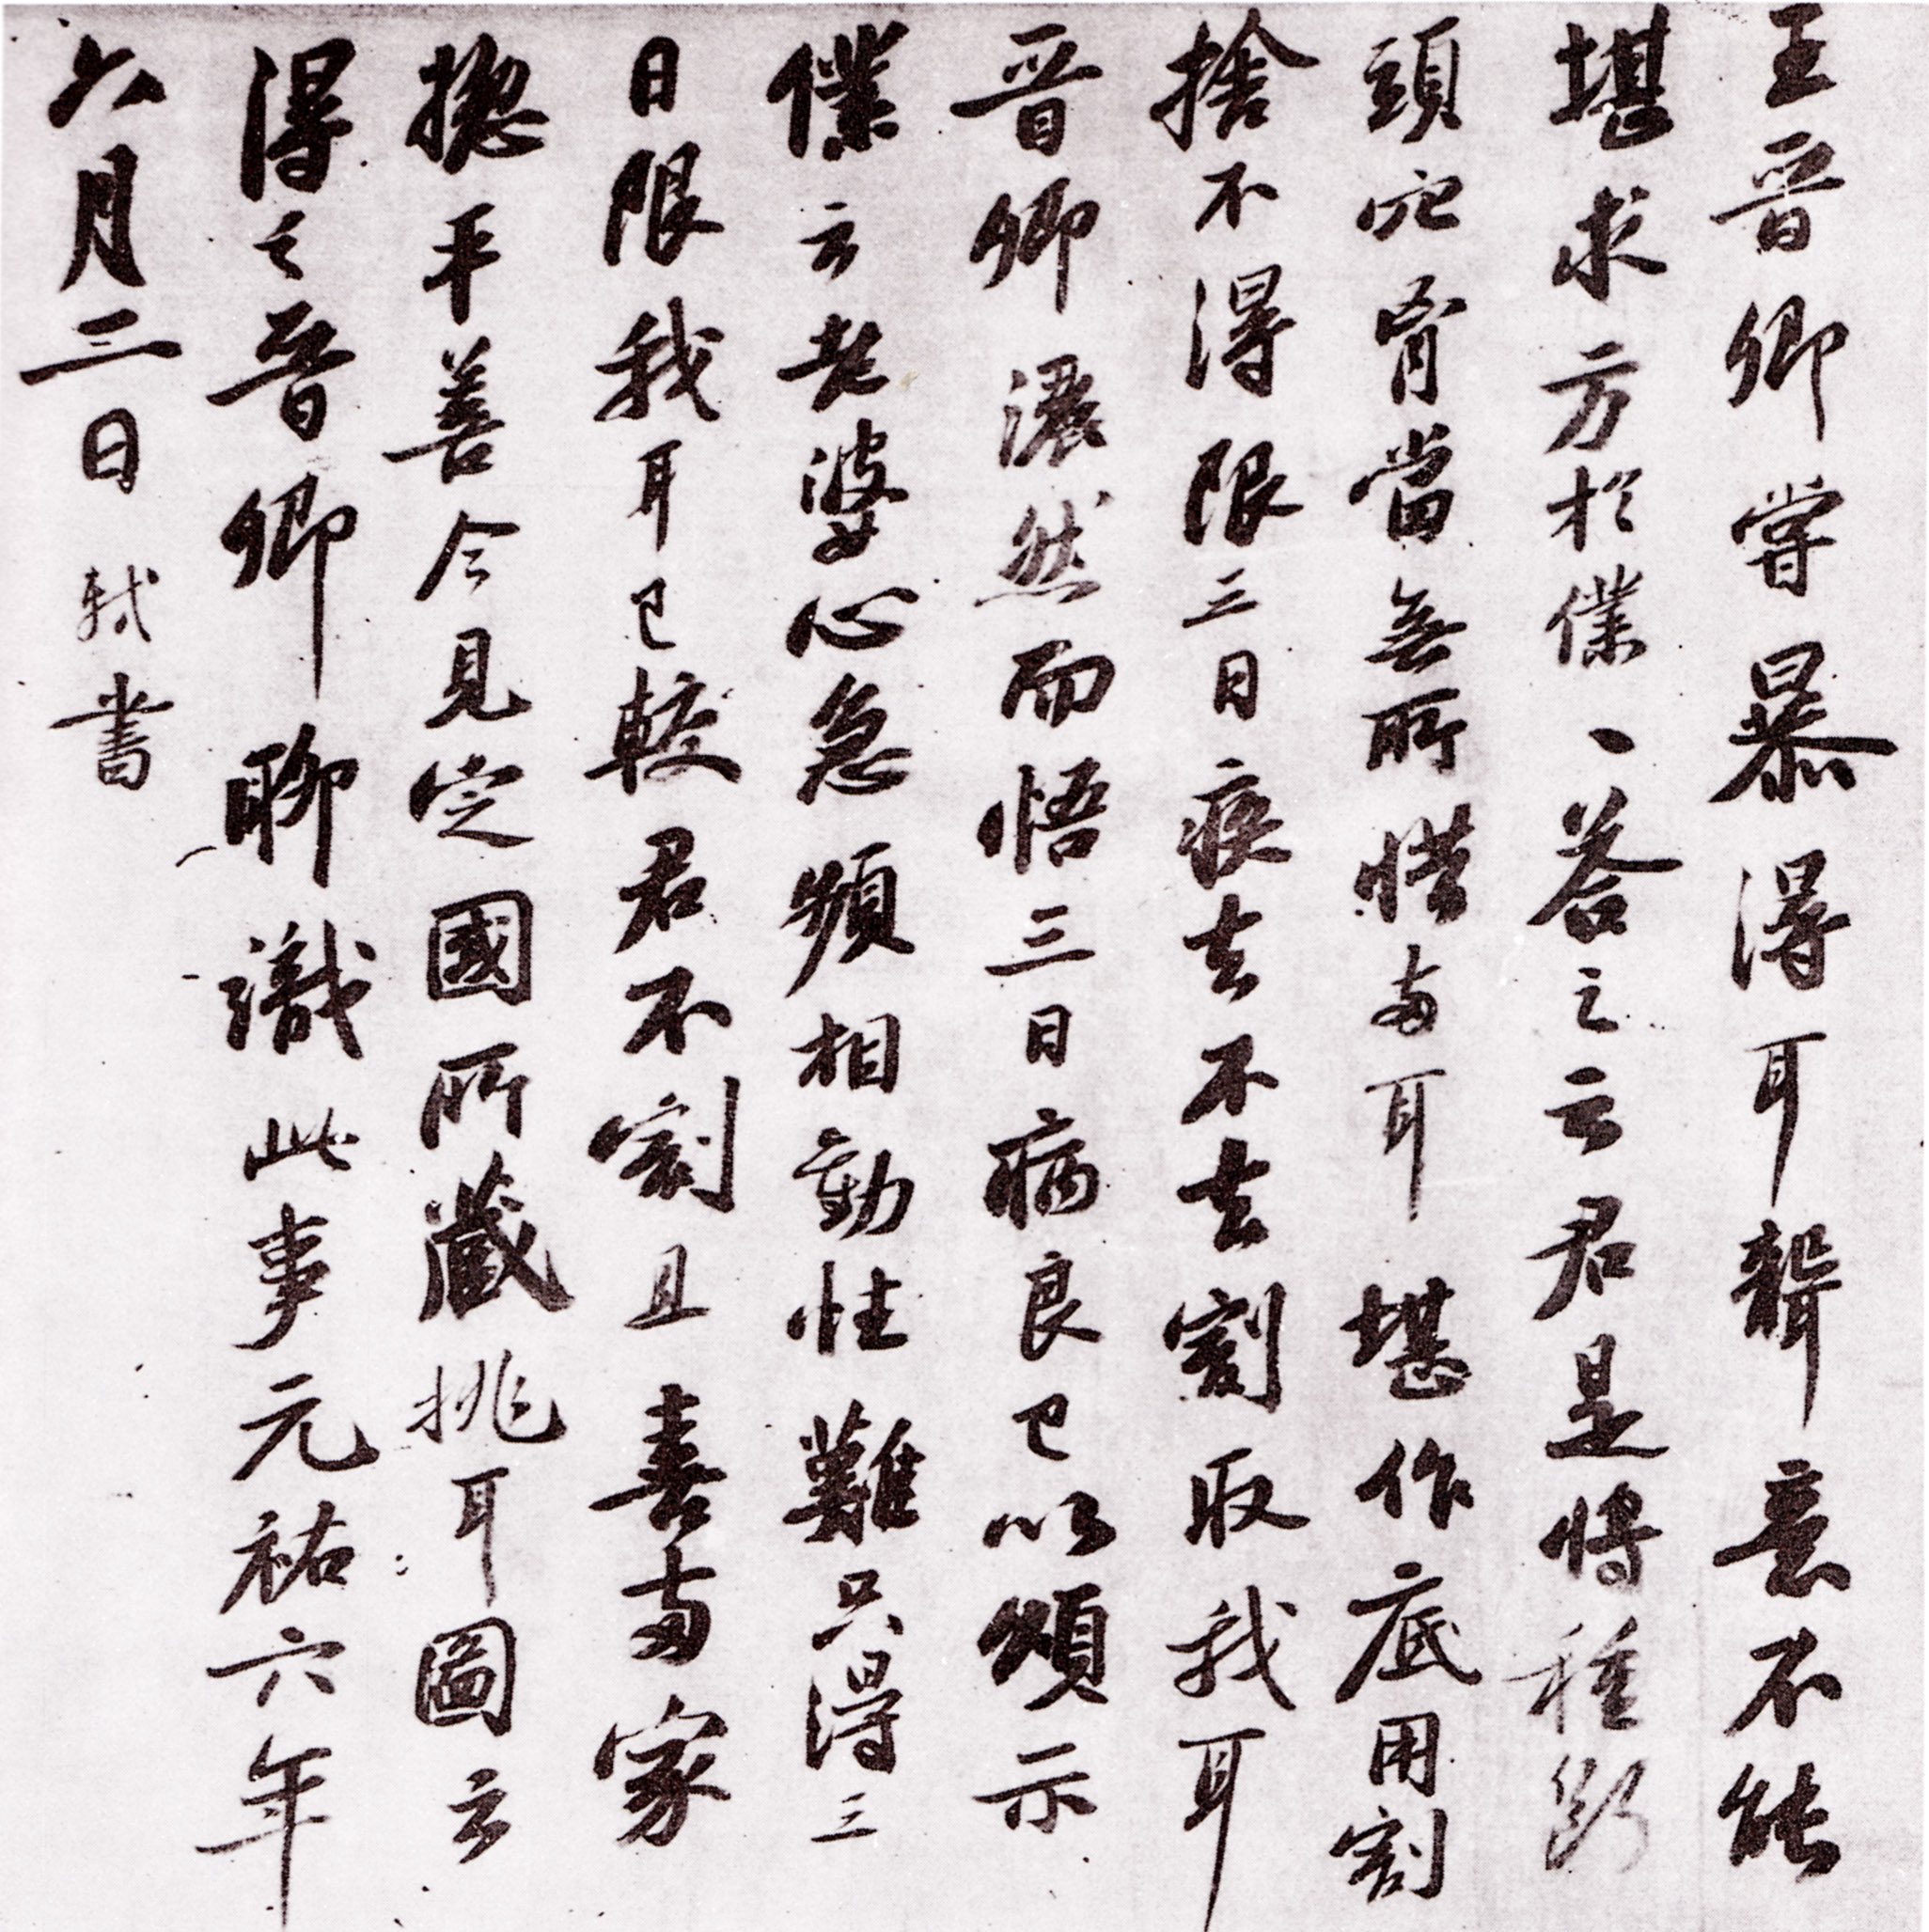 王晋卿嘗暴得耳聾意不能
堪求方於僕、答之云君是將種斷
頭穴胷當無所惜兩耳堪作底用割
捨不得限三日疾去不去割取我耳
晋卿灑然而悟三日病良已以頌示
僕云老婆心急頻相勸性難只得三
日限我耳已較君不割且喜兩家
揔平善今見定國所藏挑耳圖云
得之晋卿聊識此事元祐六年
六月二日軾書